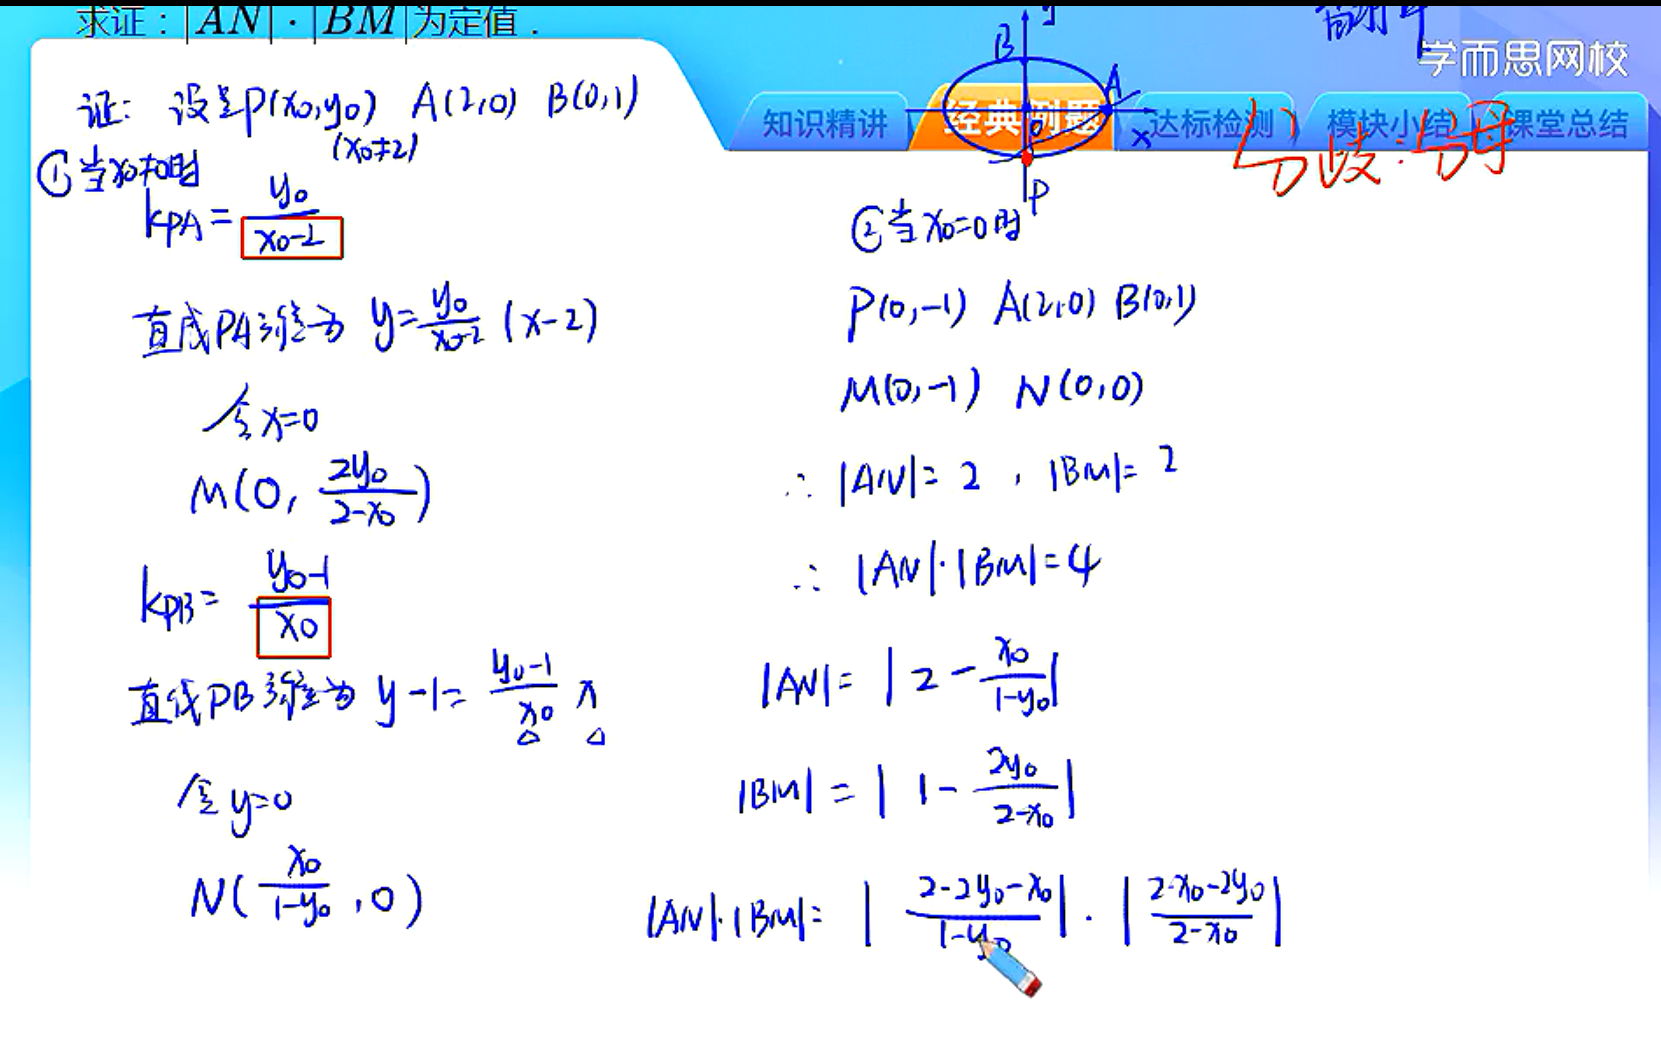 求证：|AN|·|BM|为定值．
学而思网校
知识精讲 经典例题 达标检测 模块小结 课堂总结
B y A x O P
分歧：分母
证：设P(x₀,y₀) A(2,0) B(0,1)
(x₀≠2)
①当x₀≠0时
kPA=y₀/(x₀-2)
直线PA方程为 y=y₀/(x₀-2) (x-2)
令x=0
M(0, 2y₀/(2-x₀))
kPB=(y₀-1)/x₀
直线PB方程为 y-1=(y₀-1)/x₀ x
令y=0
N(x₀/(1-y₀),0)
②当x₀=0时
P(0,-1) A(2,0) B(0,1)
M(0,-1) N(0,0)
∴ |AN|=2，|BM|=2
∴ |AN|·|BM|=4
|AN|=|2-x₀/(1-y₀)|
|BM|=|1-2y₀/(2-x₀)|
|AN|·|BM|=|(2-2y₀-x₀)/(1-y₀)|·|(2-x₀-2y₀)/(2-x₀)|